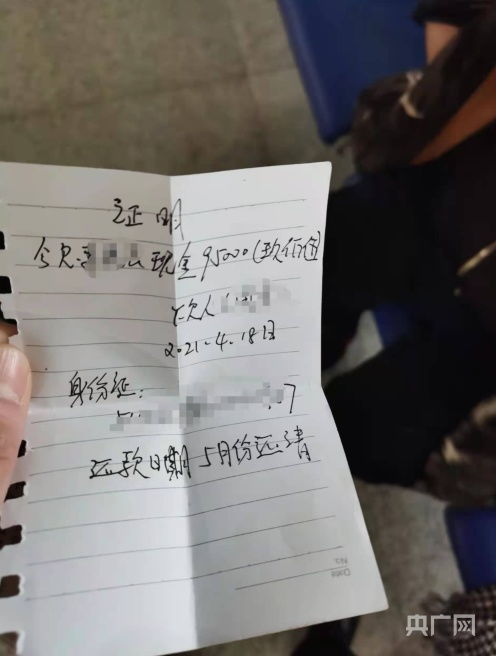 证明
今欠 现金95000(玖
欠人
2021-4.18日
身份证:
7
还款日期5月份还清
No.
Date
央广网